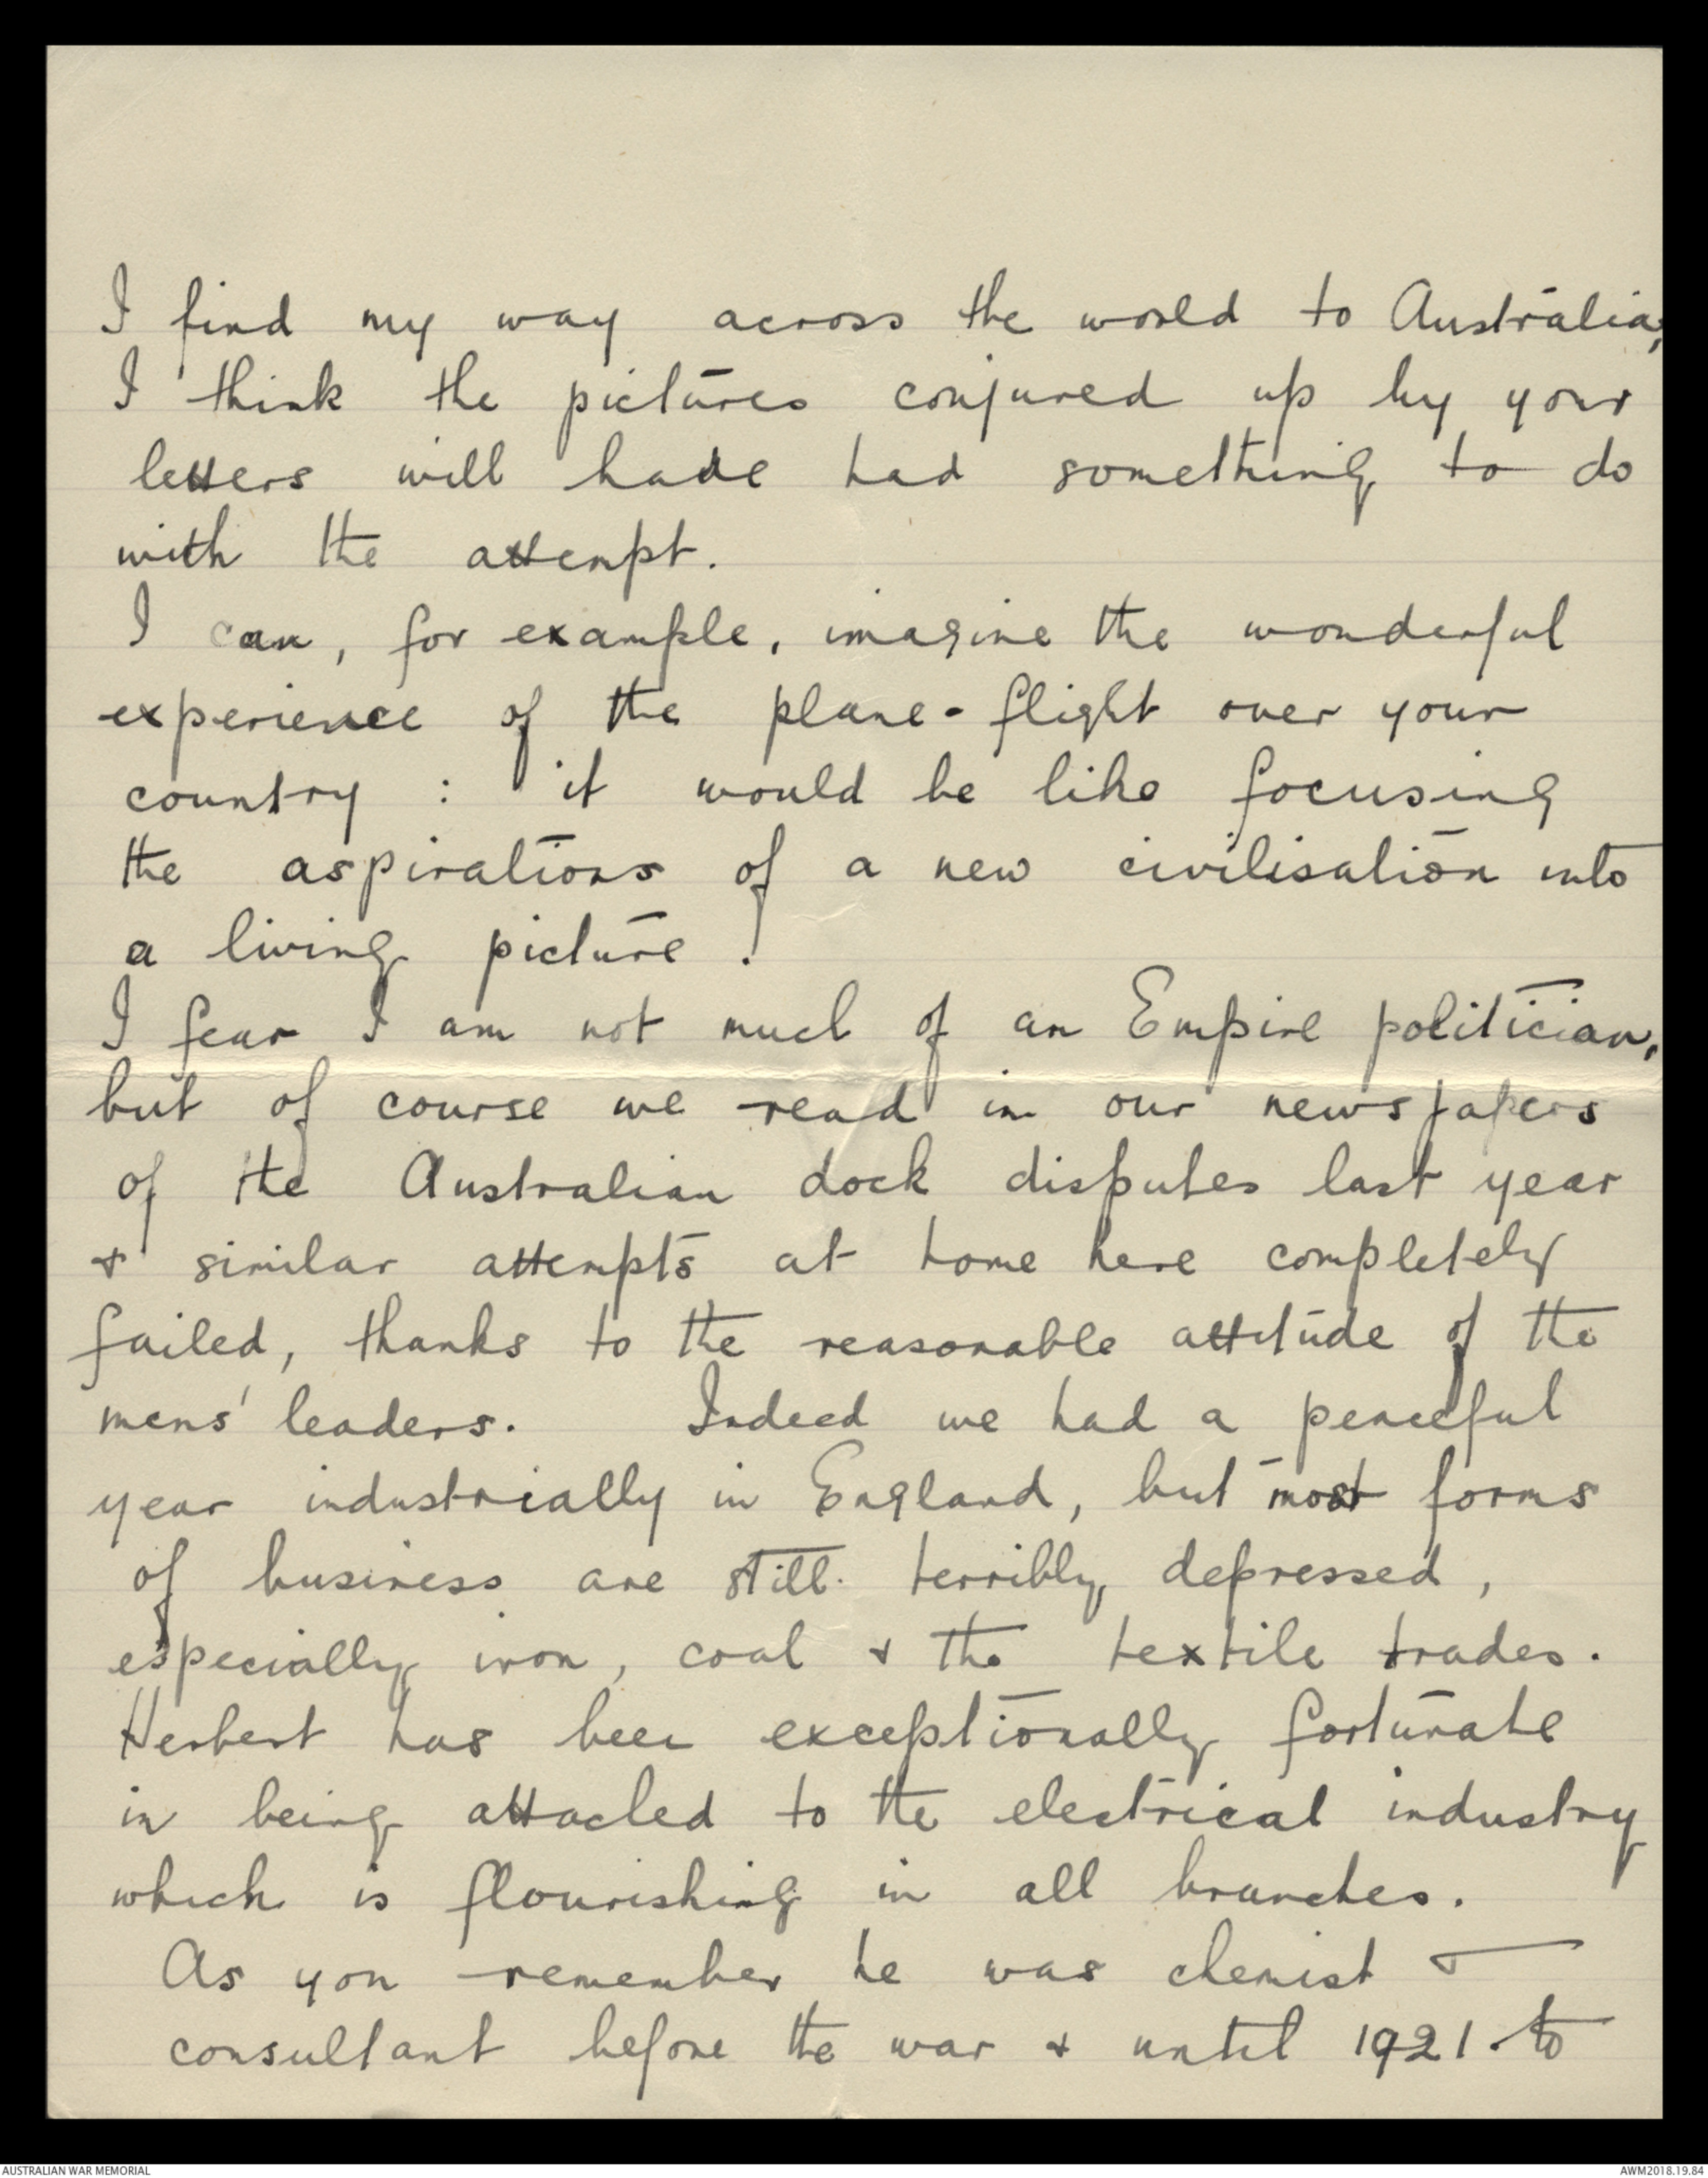 I find my way across the world to Australia,
I think the pictures conjured up by your
letters will have had something to do
with the attempt.
I can, for example, imagine the wonderful
experience of the plane-flight over your
country : it would be like focusing
the aspirations of a new civilisation into
a living picture.
I fear I am not much of an Empire politician,
but of course we read in our newspapers
of the Australian dock disputes last year
+ similar attempts at home here completely
failed, thanks to the reasonable attitude of the
mens' leaders. Indeed we had a peaceful
year industrially in England, but most forms
of business are still terribly depressed,
especially iron, coal + the textile trades.
Herbert has been exceptionally fortunate
in being attached to the electrical industry
which is flourishing in all branches.
As you remember he was chemist +
consultant before the war + until 1921 to
AUSTRALIAN WAR MEMORIAL
AWM2018.19.84